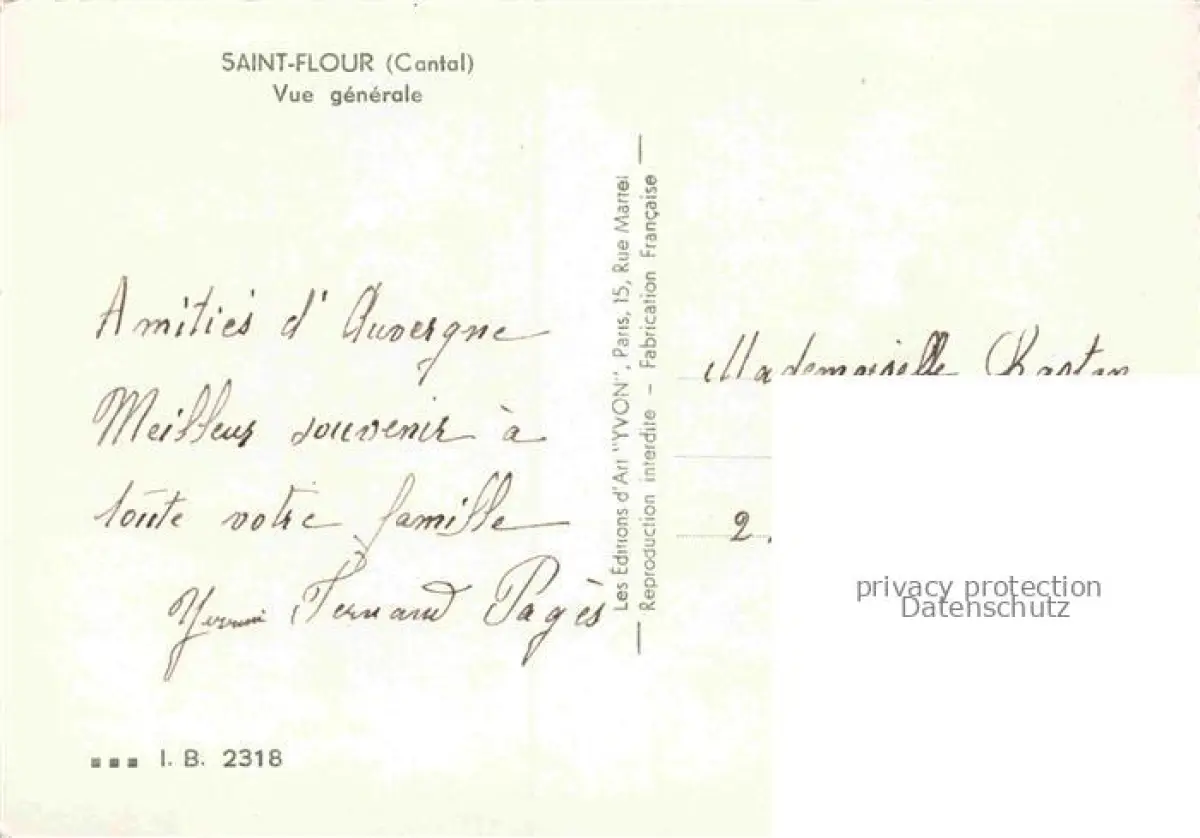 SAINT-FLOUR (Cantal)
Vue générale
Amitiés d'Auvergne
Meilleur souvenir à
toute votre famille
Fernand Pagès
I. B. 2318
Les Éditions d'Art "YVON", Paris, 15, Rue Martel
Reproduction interdite - Fabrication Française
Mademoiselle
2.
privacy protection
Datenschutz